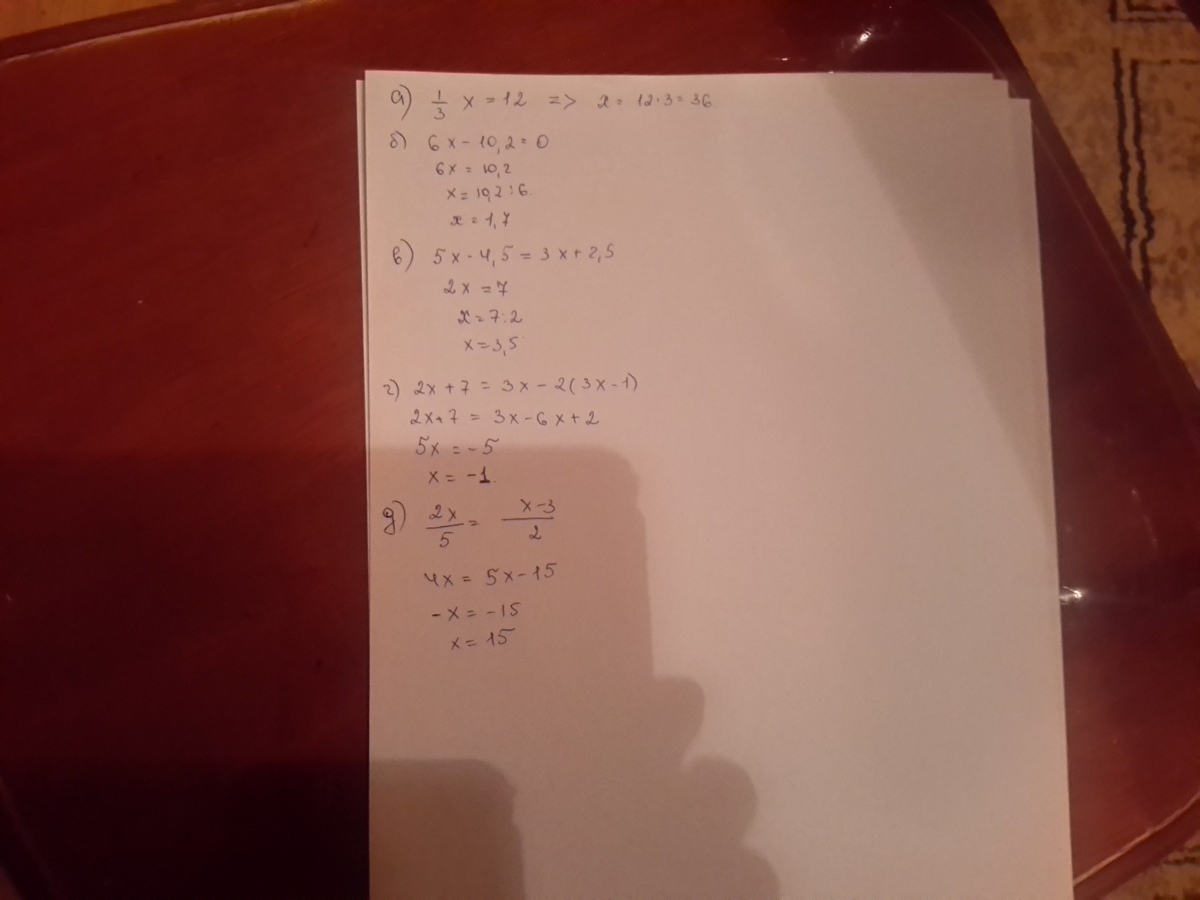 а) 1/3 x = 12 => x = 12·3 = 36.
б) 6x - 10,2 = 0
6x = 10,2
x = 10,2 : 6.
x = 1,7
в) 5x - 4,5 = 3x + 2,5
2x = 7
x = 7:2
x = 3,5
г) 2x + 7 = 3x - 2(3x - 1)
2x + 7 = 3x - 6x + 2
5x = -5
x = -1.
д) 2x/5 = x-3/2
4x = 5x - 15
-x = -15
x = 15